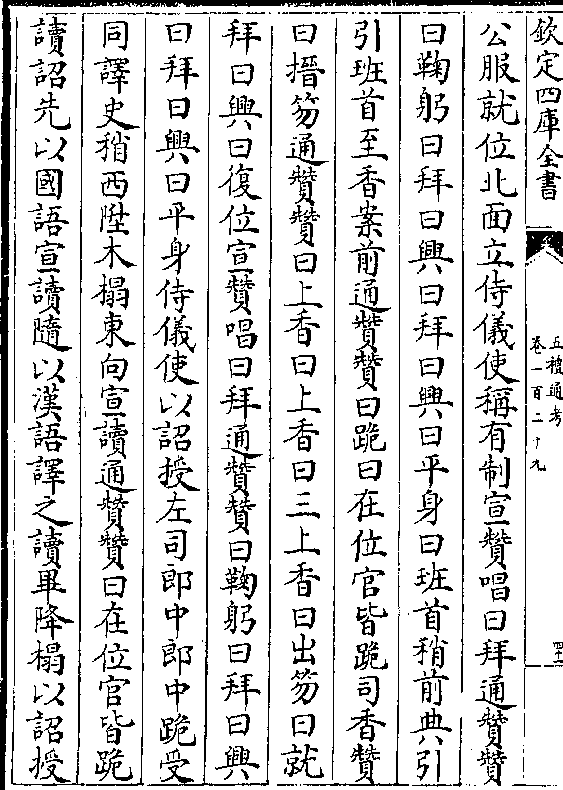 欽定四庫全書
五禮通考
卷一百二十九
公服就位北面立侍儀使稱有制宣贊唱曰拜通贊贊
曰鞠躬曰拜曰興曰拜曰興曰平身曰班首稍前典引
引班首至香案前通贊贊曰跪曰在位官皆跪司香贊
曰搢笏通贊贊曰上香曰上香曰三上香曰出笏曰就
拜曰興曰復位宣贊唱曰拜通贊贊曰鞠躬曰拜曰興
曰拜曰興曰平身侍儀使以詔授左司郎中郎中跪受
同譯史稍西陞木榻東向宣讀通贊贊曰在位官皆跪
讀詔先以國語宣讀隨以漢語譯之讀畢降榻以詔授